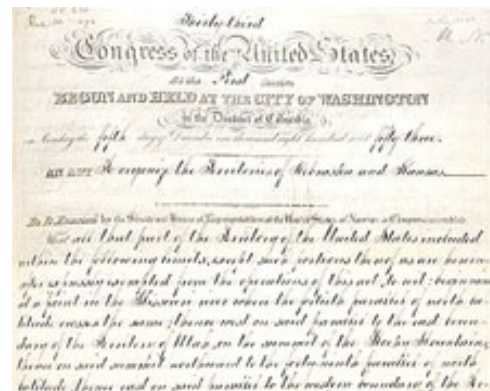 Thirty-third
Congress of the United States;
At the First Session
BEGUN AND HELD AT THE CITY OF WASHINGTON
in the District of Columbia
on Monday the fifth day of December one thousand eight hundred and fifty three.
AN ACT To organize the Territories of Nebraska and Kansas
Be It Enacted by the Senate and House of Representatives of the United States of America in Congress assembled
That all that part of the Territory of the United States included
within the following limits, except such portions thereof as are herein
after expressly exempted from the operations of this act, to wit: beginning
at a point in the Missouri river where the fortieth parallel of north la
titude crosses the same; thence west on said parallel to the east boun
dary of the Territory of Utah, on the summit of the Rocky Mountains;
thence on said summit northward to the forty-ninth parallel of north
latitude; thence east on said parallel to the western boundary of the